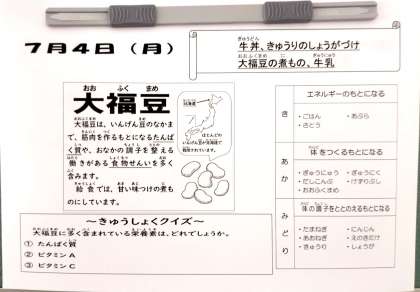 7月4日（月）
牛丼、きゅうりのしょうがづけ
大福豆の煮もの、牛乳
大福豆
大福豆は、いんげん豆のなかま
で、筋肉を作るもとになるたんぱ
く質や、おなかの調子を整える
働きがある食物せんいを多く
含みます。
給食では、甘い味つけの煮も
のにしています。
北海道
ほとんどの
いんげん豆が北海道で
栽培されています。
～きゅうしょくクイズ～
大福豆に多く含まれている栄養素は、どれでしょうか。
① たんぱく質
② ビタミンA
③ ビタミンC
き
エネルギーのもとになる
・ごはん ・あぶら
・さとう
あか
体をつくるもとになる
・ぎゅうにゅう ・ぎゅうにく
・だしこんぶ ・けずりぶし
・おおふくまめ
みどり
体の調子をととのえるもとになる
・たまねぎ ・にんじん
・あおねぎ ・えのきたけ
・きゅうり ・しょうが